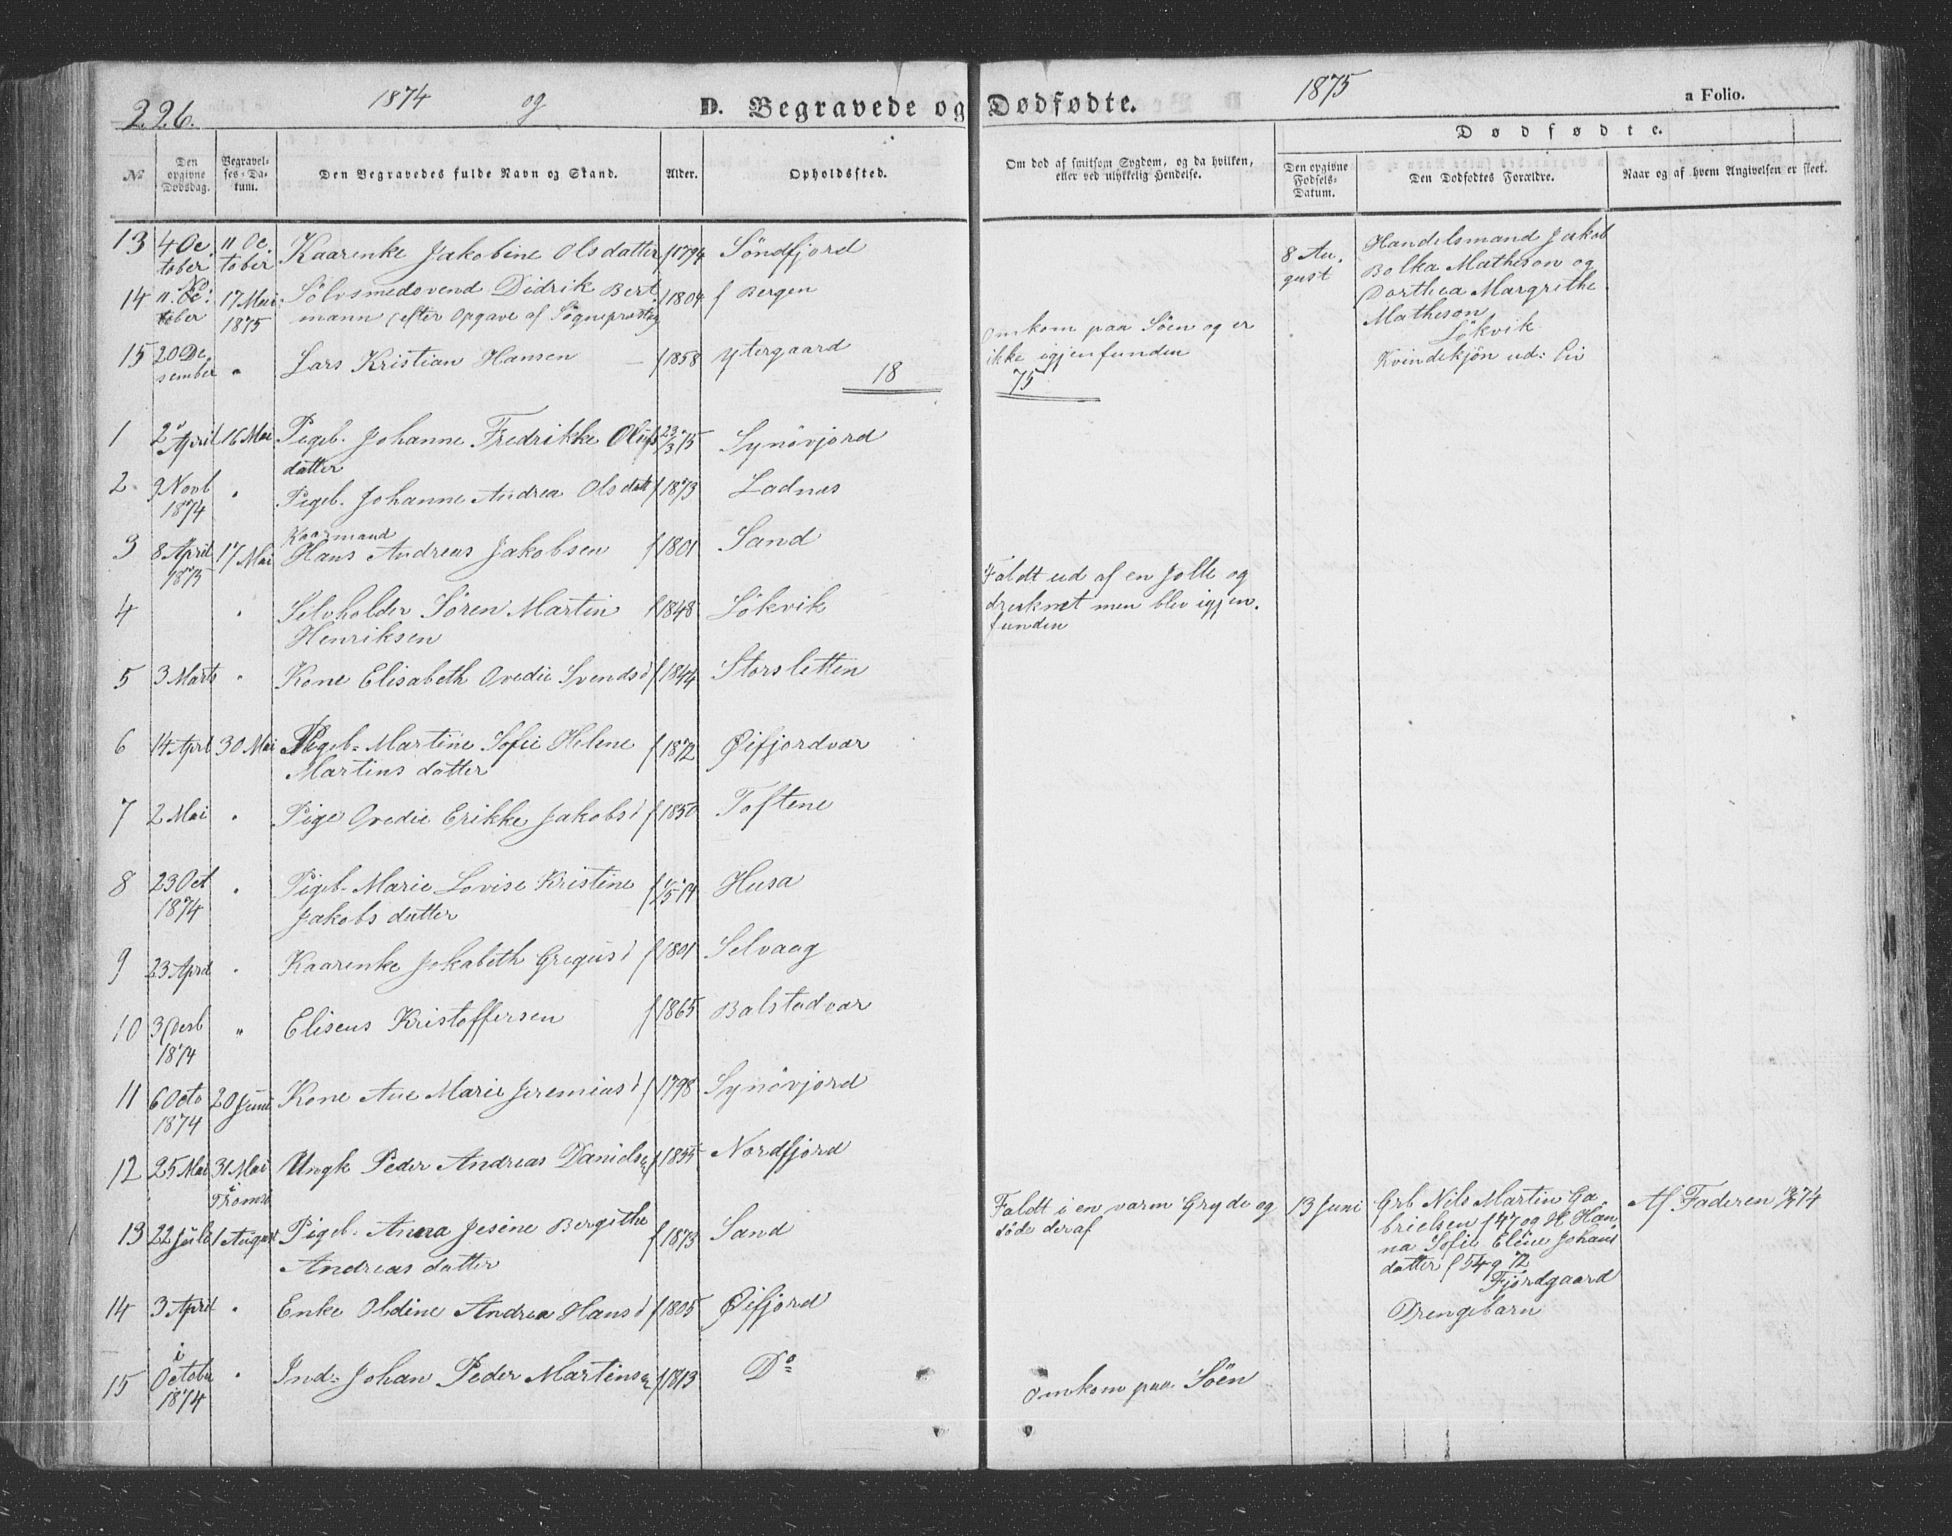 226.
1874 og
D. Begravede og Dødfødte.
1875
a Folio.
No
Den opgivne Dødsdag.
Begravelses-Datum.
Den Begravedes fulde Navn og Stand.
Alder.
Opholdssted.
Om død af smitsom Sygdom, og da hvilken, eller ved ulykkelig Hendelse.
Dødfødte.
Den opgivne Fødsels-Datum.
Den Dødfødtes Forældre.
Naar og af hvem Angivelsen er skeet.
13 4 October 11 October Kaarenke Jakobine Olsdatter f 1794 Söndfjord
8 August Handelsmand Jakob
Bolka Matheson og
Dorthea Margrithe
Matheson,
Lökvik
Kvindekjön ud: liv
14 17 Mai 1875 Sölvsmedsvend Didrik Bert
mann (efter Opgave af Sogneprest f 1809 f Bergen
15 20 Desember " Lars Kristian Hansen f 1858 Ytergaard
Omkom paa Söen og er
ikke igjenfunden
18
75
1 2 April 16 Mai Pigeb. Johanne Fredrikke Ols
datter 23/3 75 Synövjord
2 9 Novb 1874 " Pigeb. Johanne Andrea Olsdatt f 1873 Ladnes
3 8 April 1875 17 Mai Kaarmand
Hans Andreas Jakobsen f 1801 Sand
4 " Selvholder Sören Martin
Henriksen f 1848 Lökvik
Faldt ud af en Jolle og
druknet men blev igjen.
funden
5 3 Marts " Kone Elisabeth Ovedie Svendsd f 1844 Storsletten
6 14 Aprl 30 Mai Pigeb. Martine Sofie Helene
Martins datter f 1872 Øifjordvær
7 2 Mai " Pige Ovedie Erikke Jakobsd f 1850 Toftene
8 23 Oct 1874 " Pigeb. Marie Lovise Kristine
Jakobs datter f 1/5 74 Husa
9 23 April " Kaarenke Jokabeth Gregusd f 1801 Selvaag
10 3 Desb 1874 " Eliseus Kristoffersen f 1865 Balstadvær
11 6 Octo 1874 20 Juni Kone Ane Marie Jeremiasd f 1798 Synövjord
12 25 Mai 31 Mai i Tromsö Ungk Peder Andreas Danielsen f 1855 Nordfjord
13 22 Juli 1 August Pigeb. Anna Jesine Bergithe
Andreas datter f 1873 Sand
Faldt i en varm Gryde og
döde deraf
13 Juni Grb Nils Martin Ga
brielsen f 47 og H Han
na Sofie Eline Johans
datter f 54 g 72
Fjordgaard
Drengebarn
Af Faderen 74
14 3 April " Enke Oldine Andrea Hansd f 1805 Øifjord
15 i October 1874 " Ind: Johan Peder Martinsen f 1813 Do
Omkom paa Söen